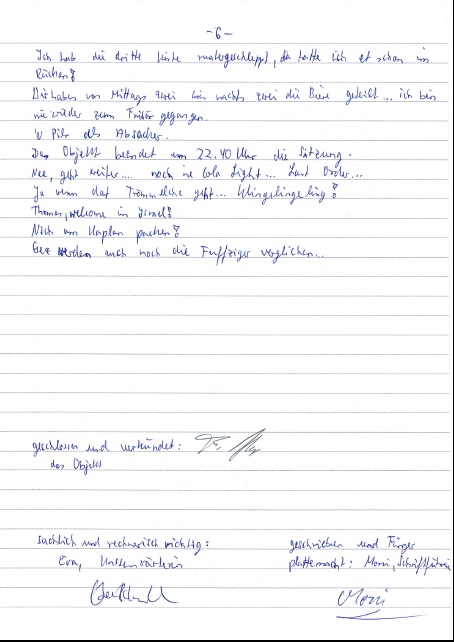 -6-
Ich hab die dritte Kiste runtergeschleppt, da hatte ich et schon im
Rücken!
Wir haben von Mittags zwei bis nachts zwei die Biere geteilt... ich bin
nie wieder zum gegangen.
'n Pils als Absacker.
Das Objekt beendet um 22.40 Uhr die Sitzung.
Nee, geht weiter... noch ne Cola Light... Last Order...
Ja wenn dat Trömmelche geht... Klingelingeling!
Thomas, welcome in Israel!
Noch am packen!
Getz werden auch noch die Fuffziger verglichen...
geschlossen und verkündet:
das Objekt
sachlich und rechnerisch richtig:
Eva, Kassenwärtin
geschrieben und Finger
plattemacht: Moni, Schriftführerin
Moni